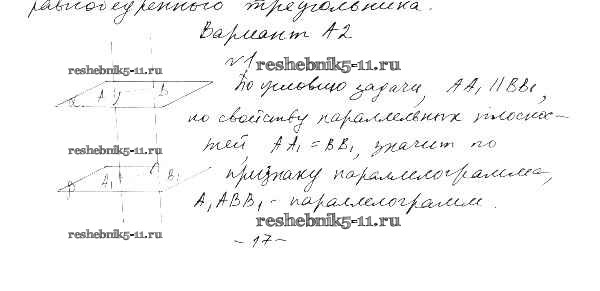 равнобедренного треугольника.
Вариант А2
№1
reshebnik5-11.ru
reshebnik5-11.ru
По условию задачи, AA₁ || BB₁,
α A B
по свойству параллельных плоскос-
reshebnik5-11.ru
тей AA₁ = BB₁, значит по
β A₁ B₁
признаку параллелограмма,
A₁ABB₁ - параллелограмм.
reshebnik5-11.ru
reshebnik5-11.ru
- 17 -